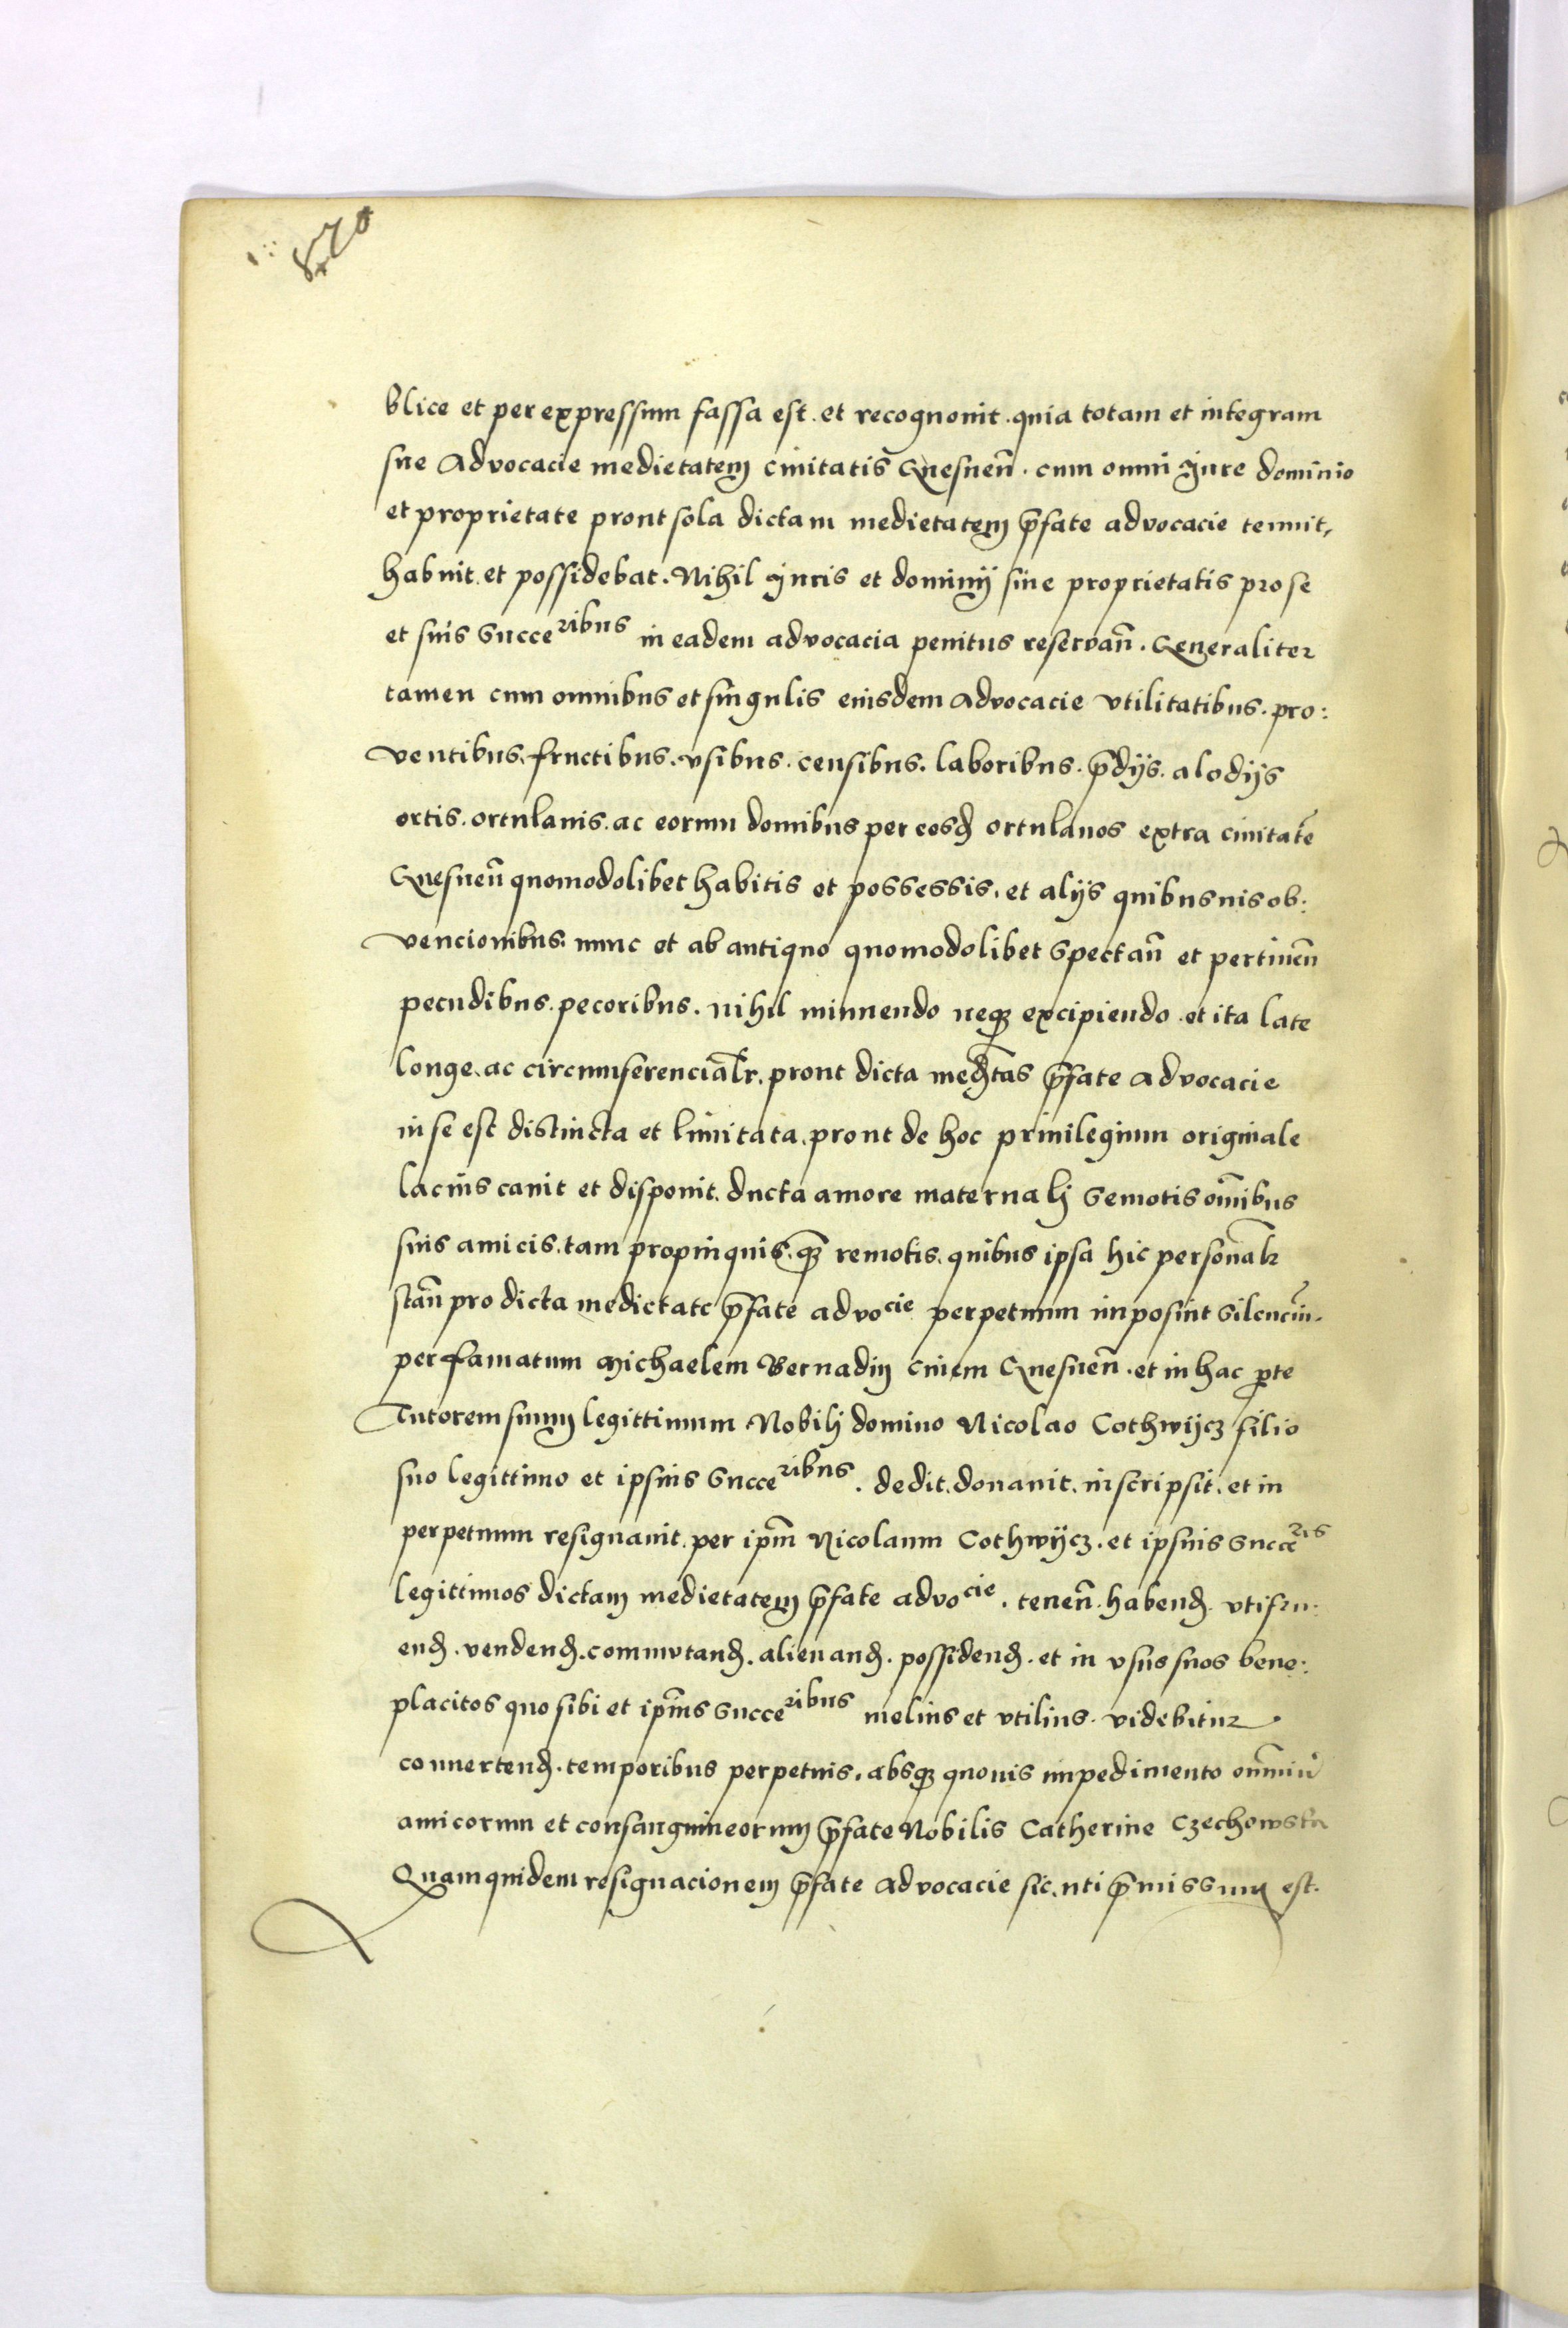 blice et per expressum fassa est . et recognouit . quia totam et integram
sue Advocacie medietatem ciuitatis Gnesnen̄ . cum omni Jure dominio
et proprietate prout sola dictam medietatem p̄fate advocacie tenuit,
habuit . et possidebat . Nihil Juris et dominij siue proprietatis pro se
et suis Succeribus in eadem advocacia penitus reservan̄ . Generaliter
tamen cum omnibus et singulis eiusdem Advocacie vtilitatibus . pro:
ventibus . fructibus . vsibus . censibus . laboribus . p̄dijs . alodijs
ortis . ortulanis . ac eorum domibus per eosd ortulanos extra ciuitatē
Gnesnen̄ quomodolibet habitis et possessis . et alijs quibusuis ob:
vencionibus . nunc et ab antiquo quomodolibet spectan̄ et pertinen̄
pecudibus . pecoribus . nihil minuendo neqꝫ excipiendo . et ita late
longe . ac circumferencial̄r . prout dicta medtās p̄fate advocacie
in se est distincta et limitata . prout de hoc priuilegium originale
lacius canit et disponit . ducta amore maternali semotis om̄ibus
suis amicis . tam propinquis . qꝫ remotis . quibus ipsa hic personalr̄
stan̄ pro dicta medietate p̄fate advocie perpetuum imposuit silenciū .
per famatum Michaelem Bernadin ciuem Gnesnen̄ . et in hac ꝑte
Tutorem suum legittimum Nobili domino Nicolao Cothwijcz filio
suo legittimo et ipsius Succeribus . dedit . donauit . inscripsit . et in
perpetuum resignauit . per ip̄m Nicolaum Cothwijcz . et ipsius Succeris
legittimos dictam medietatem p̄fate advocie . tenen̄ . habend . vtifru:
end . vendend . commutand . alienand . possidend . et in vsus suos bene:
placitos quo sibi et ip̄ius Succeribus melius et vtilius . videbitur .
conuertend . temporibus perpetuis . absqꝫ quouis impedimento om̄niū
amicorum et consanguineorum p̄fate Nobilis Catherine Czechowska
Quamquidem resignacionem p̄fate Advocacie sic . uti p̄missum est .